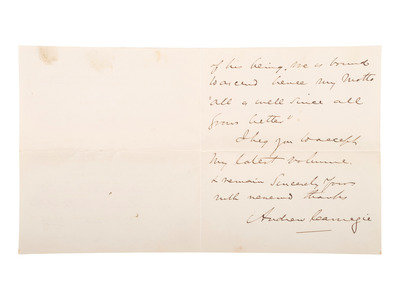 of his being. He is bound
to ascend hence my Motto
"all is well since all
grows better"
I beg you to accept
my latest volume.
& remain Sincerely Yours
with renewed thanks
Andrew Carnegie